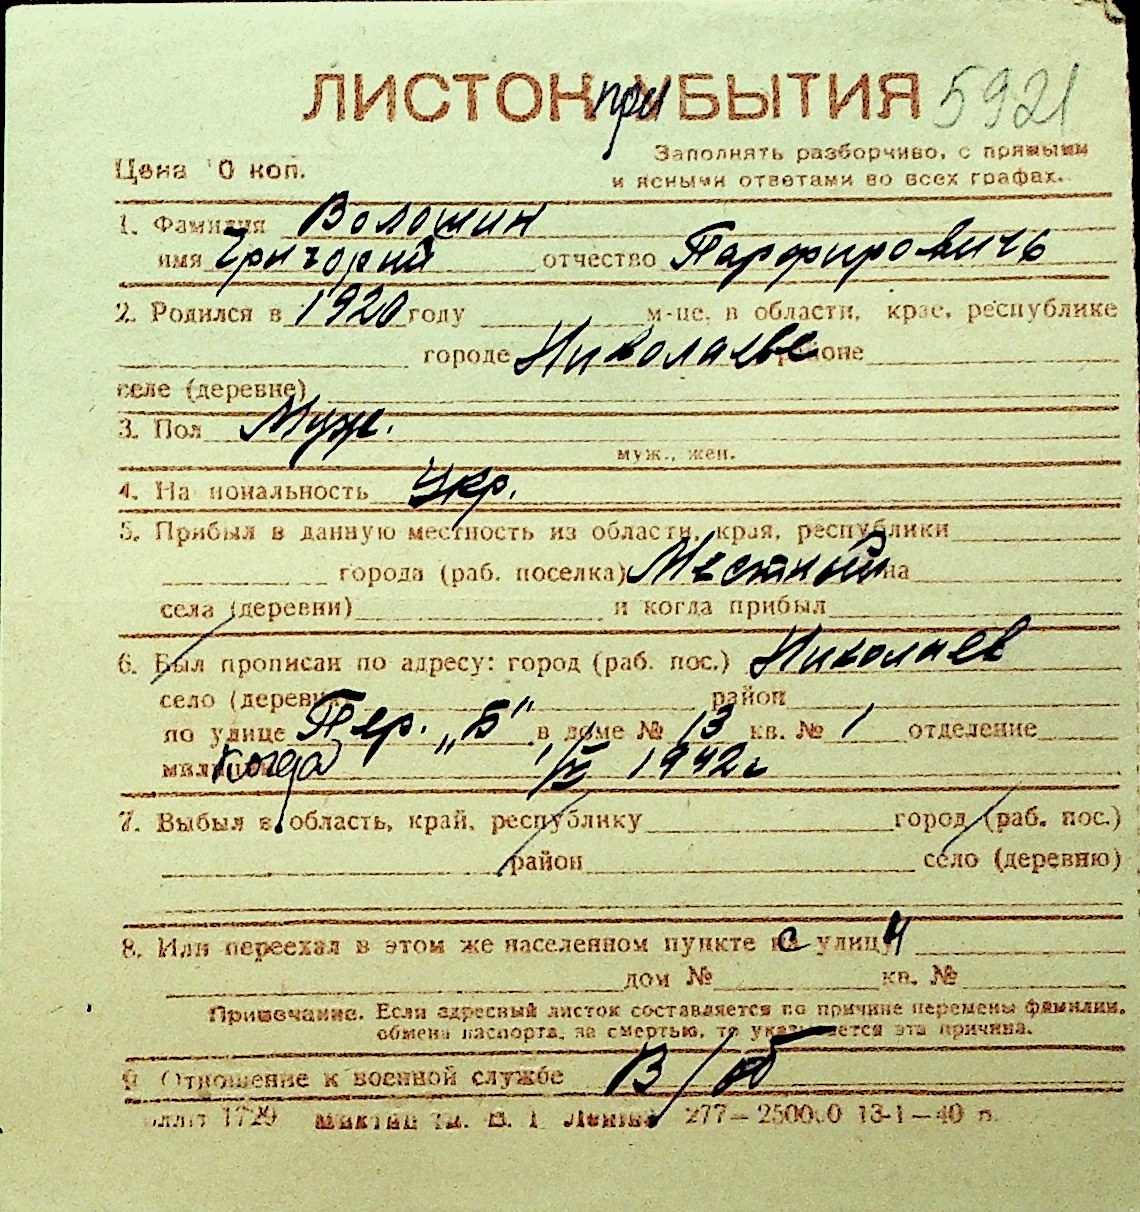 ЛИСТОК прибЫТИЯ 5921
Цена 10 коп.
Заполнять разборчиво, с прямыми
и ясными ответами во всех графах.
1. Фамилия Волошин
имя Григорий отчество Парфирович
2. Родился в 1920 году м-це, в области, крае, республике
городе Николаеве районе
селе (деревне)
3. Пол Муж.
муж., жен.
4. Национальность Укр.
5. Прибыл в данную местность из области, края, республики
города (раб. поселка) Местный
села (деревни) и когда прибыл
6. Был прописан по адресу: город (раб. пос.) Николаев
село (деревня) район
по улице Пер. „Б" в доме № 13 кв. № 1 отделение
милиции когда 1/IV 1942 г
7. Выбыл в область, край, республику город (раб. пос.)
район село (деревню)
8. Или переехал в этом же населенном пункте с улицы
дом № кв. №
Примечание. Если адресный листок составляется по причине перемены фамилии,
обмена паспорта, за смертью, то указывается эта причина.
9. Отношение к военной службе В/об
1729 277—250000 13-1—40 п.